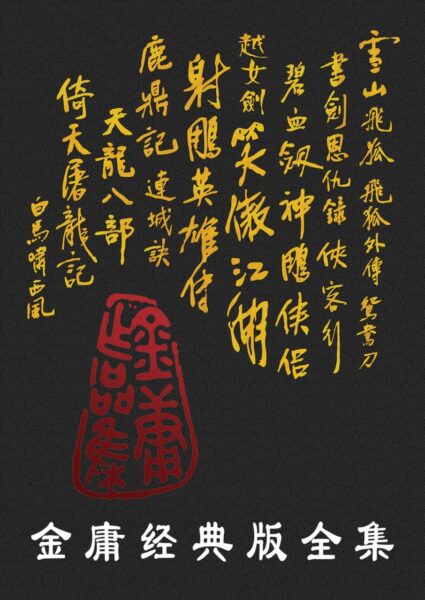 雪山飛狐 飛狐外傳 鴛鴦刀
書劍恩仇錄 俠客行
碧血劍 神鵰俠侶
越女劍 笑傲江湖
射鵰英雄传
鹿鼎記 連城訣
天龍八部
倚天屠龍記
白馬嘯西風
金庸作品集
金庸经典版全集